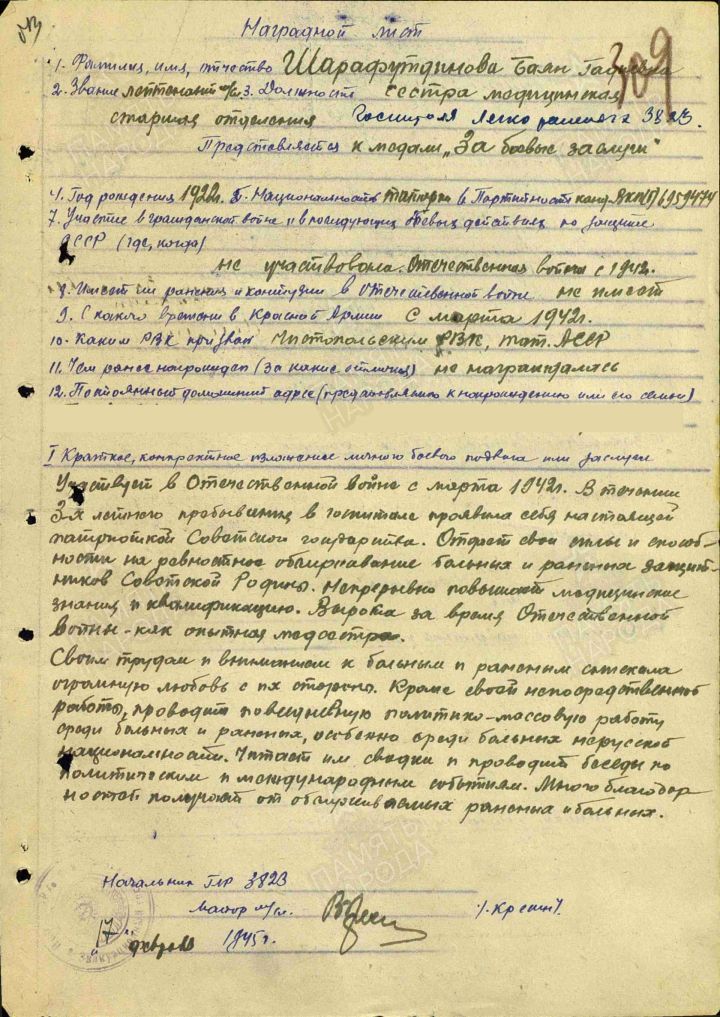 Наградной лист
309
1. Фамилия, имя, отчество Шарафутдинова Баян
2. Звание лейтенант м/сл 3. Должность сестра медицинская
старшая отделения Госпиталя Легко раненых 3823.
Представляется к медали „За боевые заслуги“
4. Год рождения 1922г. 5. Национальность татарка 6 Партийность канд. ВКП(б) 6959474
7. Участие в гражданской войне и в последующих боевых действиях по защите
СССР (где, когда)
не участвовала. Отечественная война с 1942г.
8. Имеет ли ранения и контузии в отечественной войне не имеет
9. С какого времени в Красной Армии с марта 1942г.
10. Каким РВК призван Чистопольским РВК, Тат. АССР
11. Чем ранее награжден (за какие отличия) не награждалась
12. Постоянный домашний адрес (представляемого к награждению или его семьи)
I Краткое, конкретное изложение личного боевого подвига или заслуг
Участвует в Отечественной войне с марта 1942г. В течении
3-х летнего пребывания в госпитале проявила себя настоящей
патриоткой Советского государства. Отдает свои силы и способ-
ности на ревностное обслуживание больных и раненых защит-
ников Советской Родины. Непрерывно повышает медицинские
знания и квалификацию. Выросла за время Отечественной
войны - как опытная медсестра.
Своим трудом и вниманием к больным и раненым снискала
огромную любовь с их стороны. Кроме своей непосредственной
работы, проводит повседневную политико-массовую работу
среди больных и раненых, особенно среди больных нерусской
национальности. Читает им сводки и проводит беседы по
политическим и международным событиям. Много благодар
ностей получает от обслуживаемых раненых и больных.
Начальник ГЛР 3823
Майор м/сл.
„17“ февраля 1945г.
ПАМЯТЬ НАРОДА